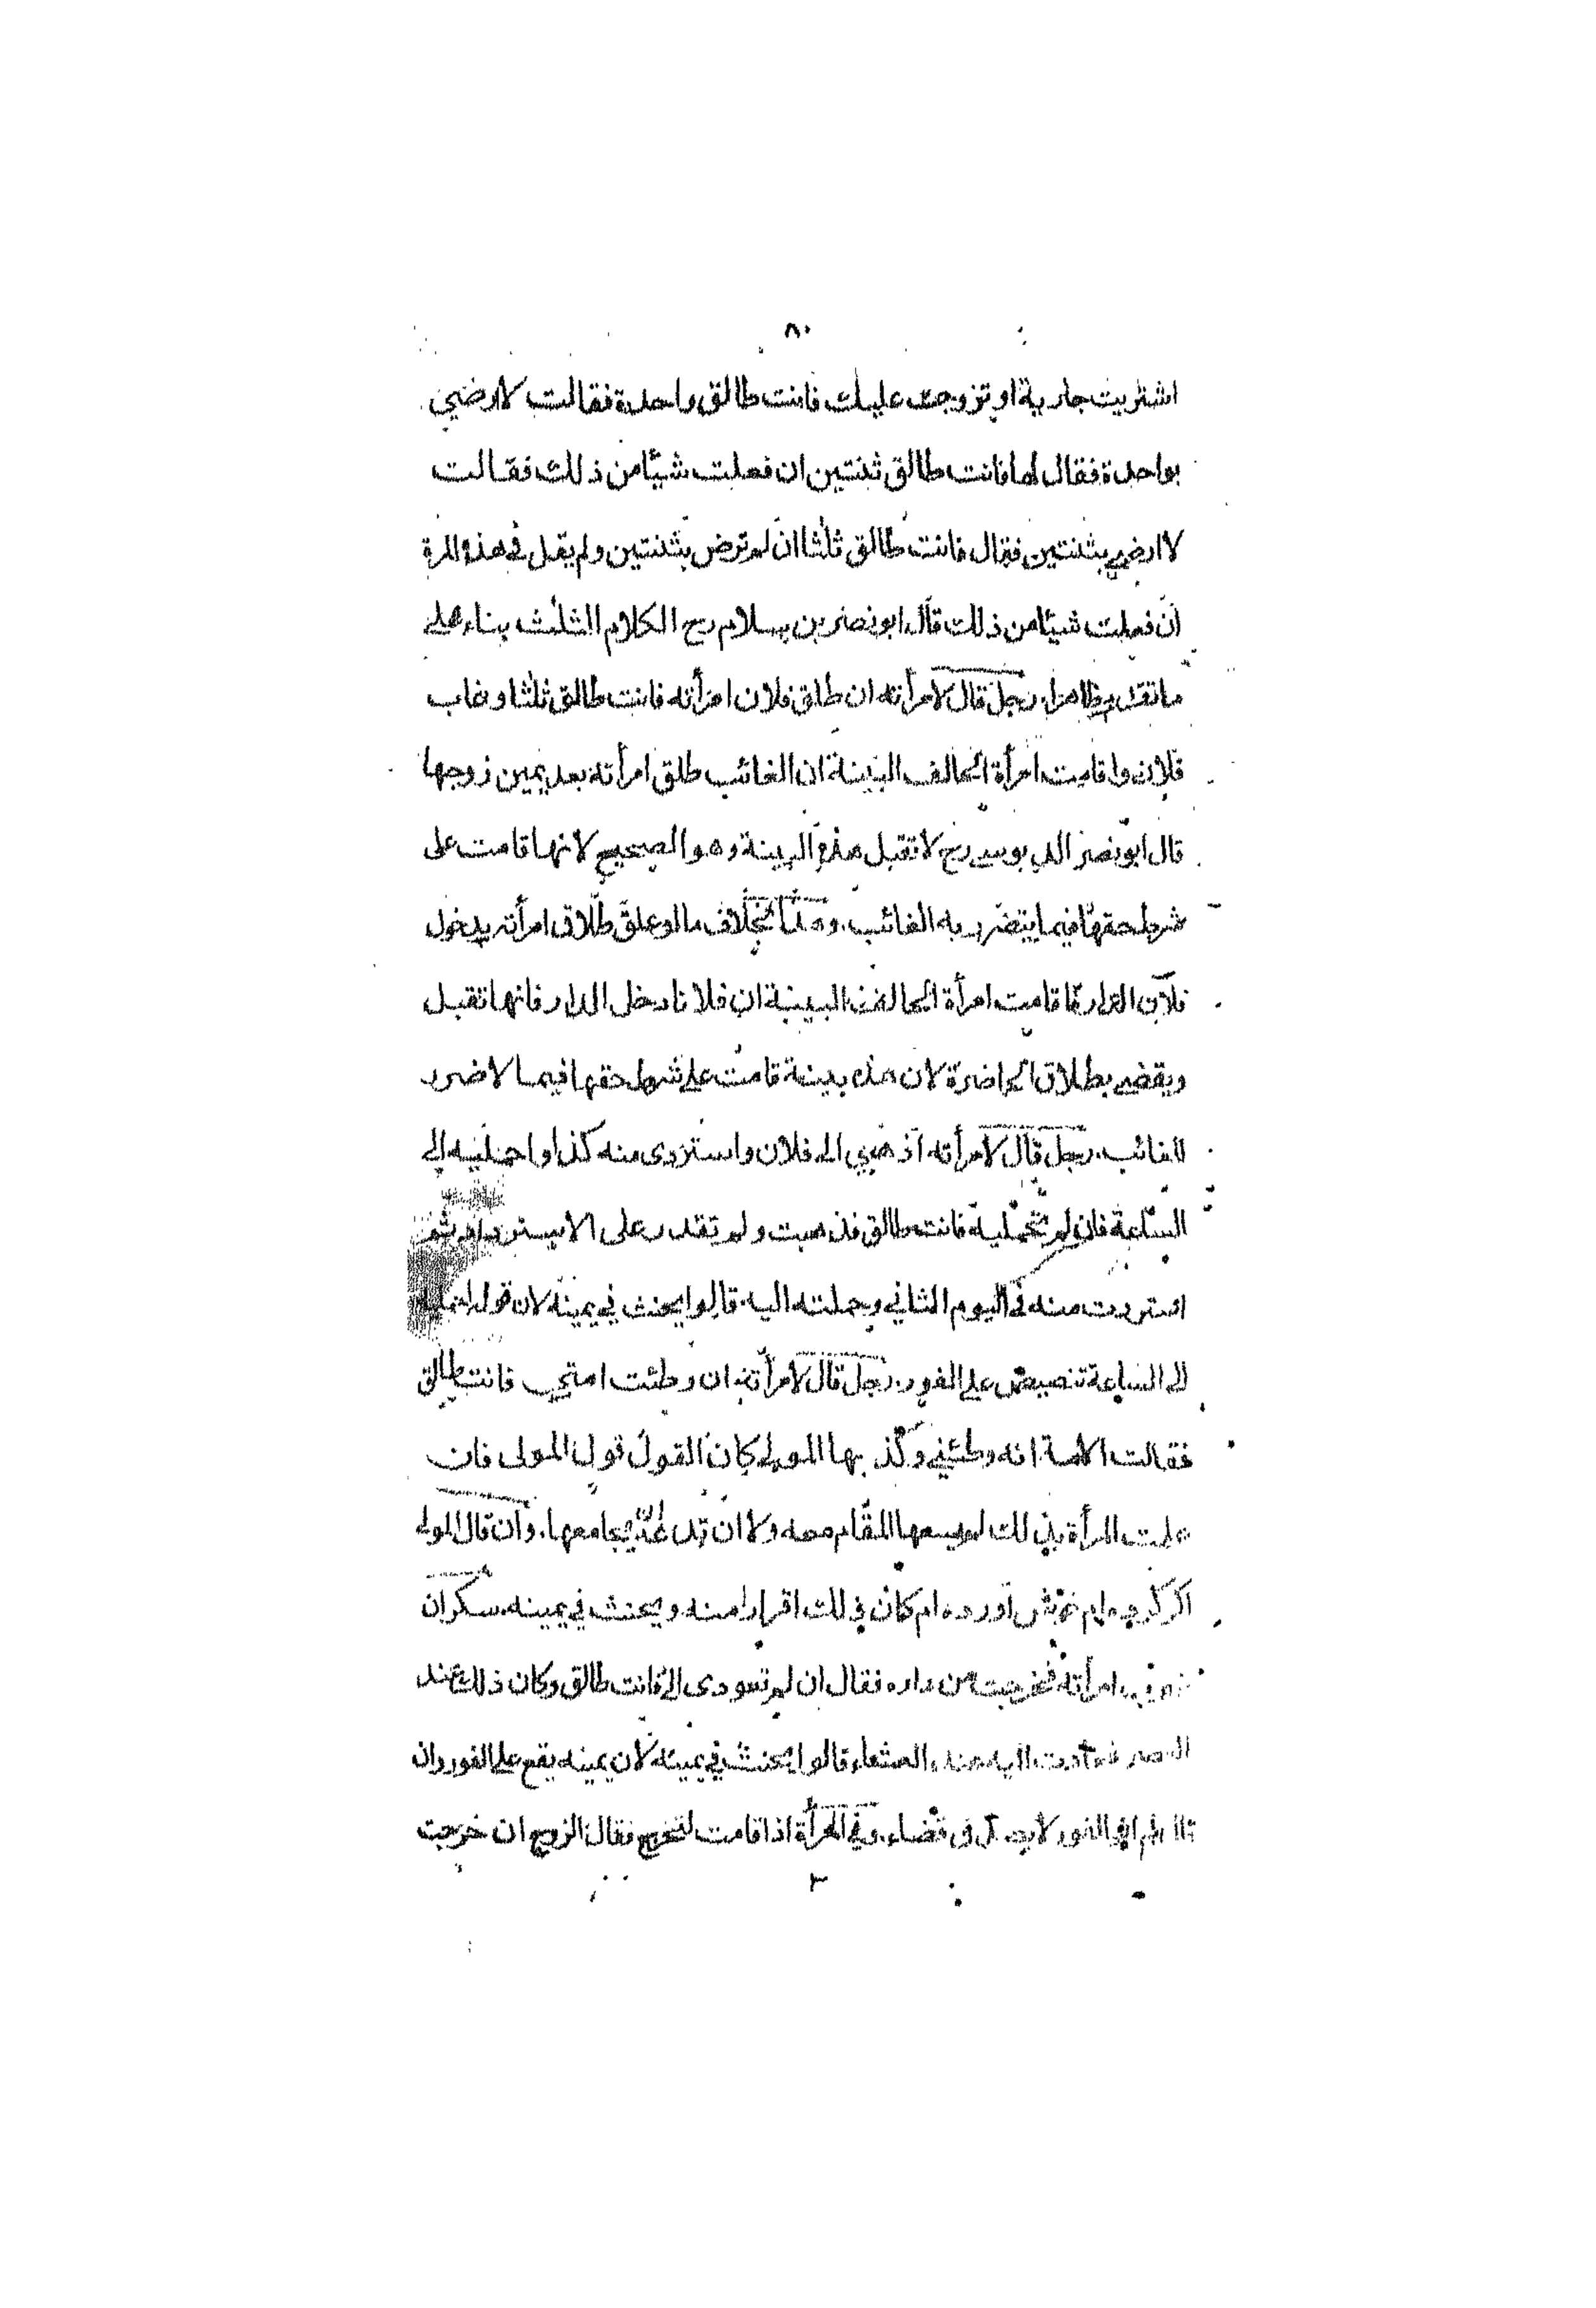 ٨٠
اشتريت جارية او تزوجت عليك فانت طالق واحدة فقالت لا ارضى
بواحدة فقال لها فانت طالق ثنتين ان فعلت شيئا من ذلك فقالت
لا ارضى بثنتين فقال فانت طالق ثلثا ان لم ترض بثنتين ولم يقل فى هذه المرة
ان فعلت شيئا من ذلك قال ابو نصر بن سلام رح الكلام الثلث بناء على
ما تقدم ظاهرا. رجل قال لامرأته ان طلق فلان امرأته فانت طالق ثلثا وغاب
فلان واقامت امرأة الحالف البينة ان الغائب طلق امرأته بعد يمين زوجها
قال ابو نصر الدبوسى رح لا تقبل هذه البينة وهو الصحيح لانها قامت على
شرط حقها فيما يتضرر به الغائب. وهذا بخلاف ما لو علق طلاق امرأته بدخول
فلان الدار فاقامت امرأة الحالف البينة ان فلانا دخل الدار فانها تقبل
ويقضى بطلاق الحاضرة لان هذه بينة قامت على شرط حقها فيما لا ضرر
للغائب. رجل قال لامرأته اذهبي الى فلان واستردى منه كذا واحمليه الى
الساعة فان لم تحمليه فانت طالق فذهبت ولم تقدر على الاسترداد ثم
استردت منه فى اليوم الثاني وحملته اليه. قالوا يحنث في يمينه لان قوله احمليه
الى الساعة تنصيص على الفور. رجل قال لامرأته ان وطئت امتي فانت طالق
فقالت الامة انه وطئني وكذبها المولى كان القول قول المولى فان
علمت المرأة بذلك لم يسعها المقام معه ولا ان تدعه يجامعها. وان قال المولى
اكر كرده ام خوش آورده ام كان ذلك اقرارا منه ويحنث في يمينه. سكران
ضرب امرأته فخرجت من داره فقال ان لم تعودى الى فانت طالق وكان ذلك عند
العصر فعادت اليه عند العشاء قالوا يحنث في يمينه لان يمينه يقع على الفور وان
قال لم انو الفور لا يصدق قضاء. وفى المرأة اذا قامت لتخرج فقال الزوج ان خرجت